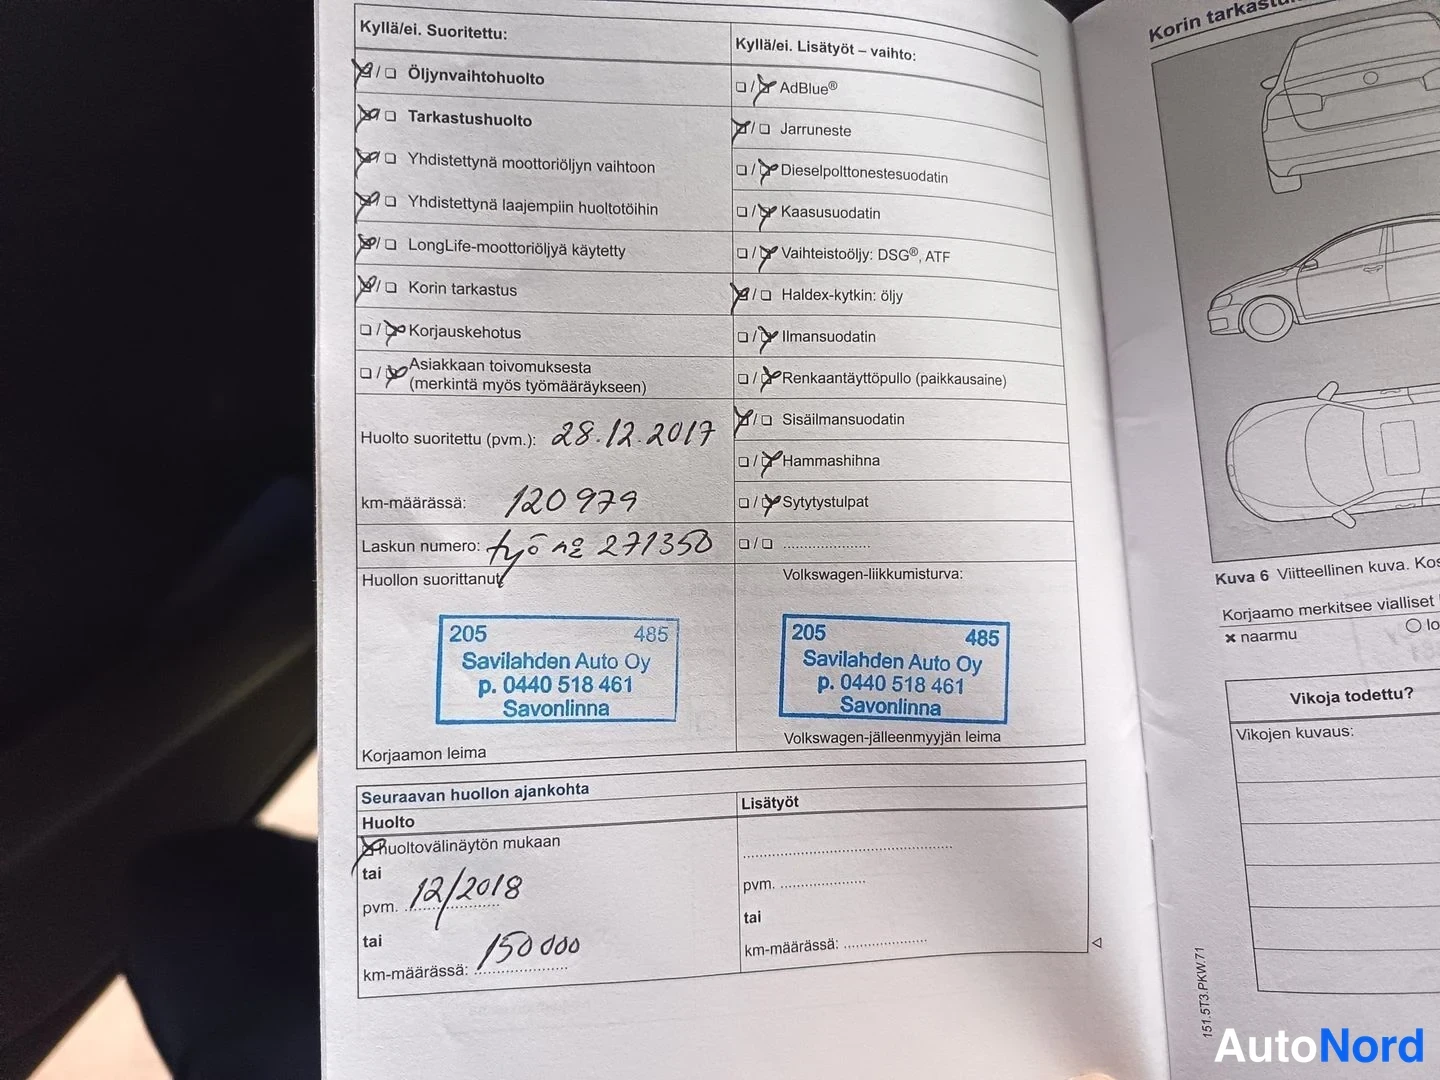 Kyllä/ei. Suoritettu:
☒/☐ Öljynvaihtohuolto
☒/☐ Tarkastushuolto
☒/☐ Yhdistettynä moottoriöljyn vaihtoon
☒/☐ Yhdistettynä laajempiin huoltotöihin
☒/☐ LongLife-moottoriöljyä käytetty
☒/☐ Korin tarkastus
☐/☒ Korjauskehotus
☐/☒ Asiakkaan toivomuksesta
(merkintä myös työmääräykseen)
Huolto suoritettu (pvm.): 28.12.2017
km-määrässä: 120979
Laskun numero: työ nº 271350
Huollon suorittanut
205 485
Savilahden Auto Oy
p. 0440 518 461
Savonlinna
Korjaamon leima
Kyllä/ei. Lisätyöt – vaihto:
☐/☒ AdBlue®
☒/☐ Jarruneste
☐/☒ Dieselpolttonestesuodatin
☐/☒ Kaasusuodatin
☐/☒ Vaihteistoöljy: DSG®, ATF
☒/☐ Haldex-kytkin: öljy
☐/☒ Ilmansuodatin
☐/☒ Renkaantäyttöpullo (paikkausaine)
☒/☐ Sisäilmansuodatin
☐/☒ Hammashihna
☐/☒ Sytytystulpat
☐/☐ .....................
Volkswagen-liikkumisturva:
205 485
Savilahden Auto Oy
p. 0440 518 461
Savonlinna
Volkswagen-jälleenmyyjän leima
Seuraavan huollon ajankohta
Huolto
☒ huoltovälinäytön mukaan
tai
pvm. 12/2018
tai
km-määrässä: 150 000
Lisätyöt
..................................................
pvm. ....................
tai
km-määrässä: ....................
Korin
Kuva 6 Viitteellinen kuva.
Korjaamo merkitsee vialliset
✖ naarmu
Vikoja todettu?
Vikojen kuvaus:
151.5T3.PKW.71
AutoNord